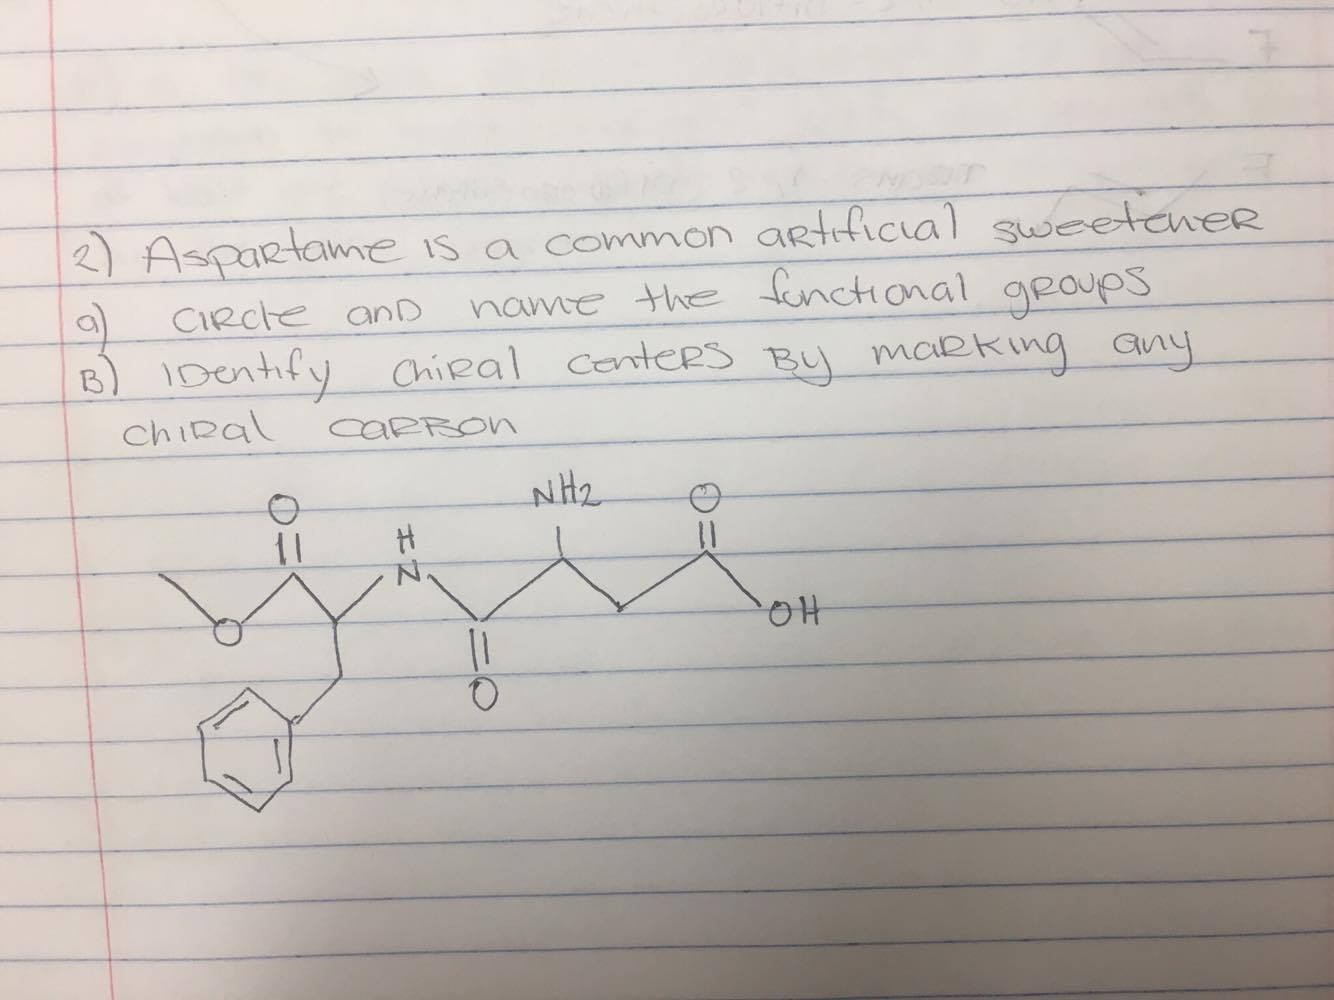 2) Aspartame is a common artificial sweetener
a) circle and name the functional groups
B) identify chiral centers By marking any
chiral carbon
O
NH2
O
H
N
O
OH
O